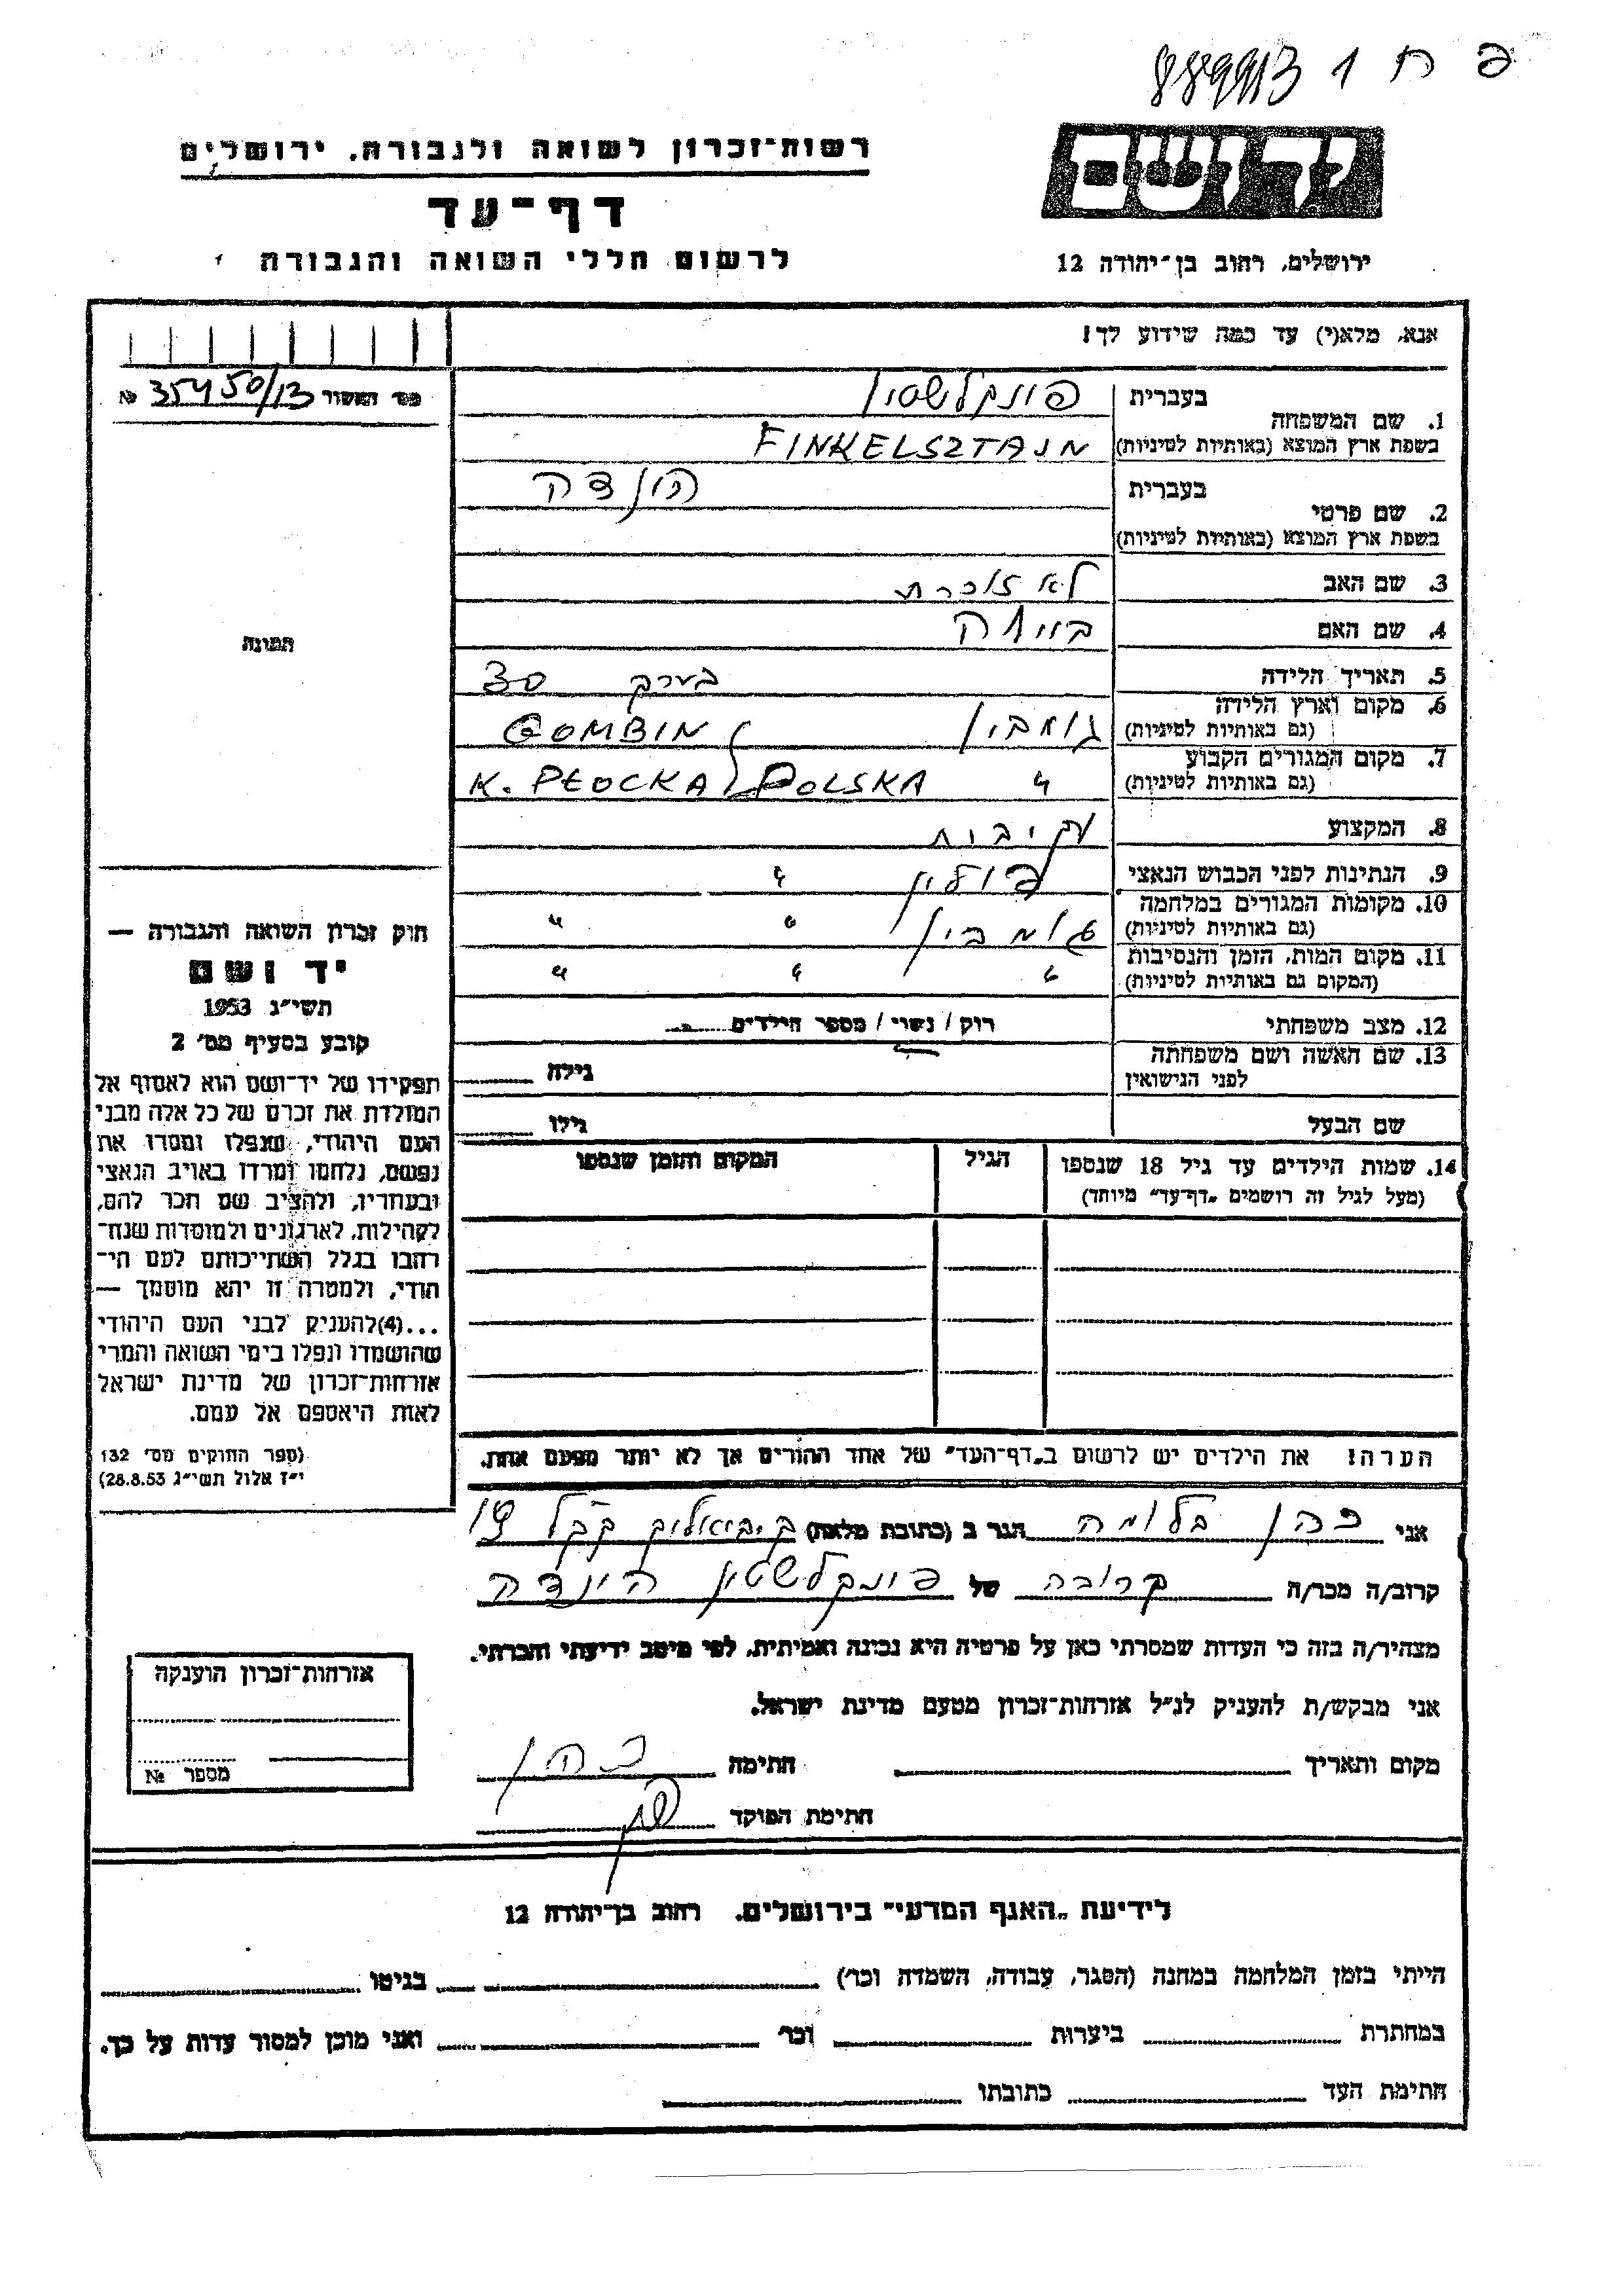 פ ח 1 889913
רשות־זכרון לשואה ולגבורה, ירושלים
דף־עד
לרשום חללי השואה והגבורה
יד ושם
ירושלים, רחוב בן־יהודה 12
אנא, מלא(י) עד כמה שידוע לך!
מס' האשור № 35450/13
1. שם המשפחה בעברית פינקלשטיין
בשפת ארץ המוצא (באותיות לטיניות) FINKELSZTAJN
2. שם פרטי בעברית הינדה
בשפת ארץ המוצא (באותיות לטיניות)
3. שם האב לא זוכרת
4. שם האם
5. תאריך הלידה בערך 30
6. מקום וארץ הלידה (גם באותיות לטיניות) גומבין GOMBIN
7. מקום המגורים הקבוע (גם באותיות לטיניות) " K. PŁOCKA POLSKA
8. המקצוע
9. הנתינות לפני הכבוש הנאצי פולין "
10. מקומות המגורים במלחמה (גם באותיות לטיניות) גומבין " "
11. מקום המות, הזמן והנסיבות (המקום גם באותיות לטיניות) " " "
12. מצב משפחתי רוק / נשוי / מספר הילדים
13. שם האשה ושם משפחתה לפני הנישואין גילה
שם הבעל גילו
14. שמות הילדים עד גיל 18 שנספו הגיל המקום והזמן שנספו
(מעל לגיל זה רושמים „דף־עד” מיוחד)
הערה! את הילדים יש לרשום ב„דף־העד” של אחד ההורים אך לא יותר מפעם אחת.
תמונה
חוק זכרון השואה והגבורה —
יד ושם
תשי״ג 1953
קובע בסעיף מס׳ 2
תפקידו של יד־ושם הוא לאסוף אל
המולדת את זכרם של כל אלה מבני
העם היהודי, שנפלו ומסרו את
נפשם, נלחמו ומרדו באויב הנאצי
ובעוזריו, ולהציב שם וזכר להם,
לקהילות, לארגונים ולמוסדות שנח־
רבו בגלל השתייכותם לעם הי־
הודי, ולמטרה זו יהא מוסמך —
...(4)להעניק לבני העם היהודי
שהושמדו ונפלו בימי השואה והמרי
אזרחות־זכרון של מדינת ישראל
לאות היאספם אל עמם.
(ספר החוקים מס׳ 132
י״ז אלול תשי״ג 28.8.53)
אני כהן בלומה הגר ב (כתובת מלאה)
קרוב/ה מכר/ה קרובה של פינקלשטיין הינדה
מצהיר/ה בזה כי העדות שמסרתי כאן על פרטיה היא נכונה ואמיתית, לפי מיטב ידיעתי והכרתי.
אני מבקש/ת להעניק לנ״ל אזרחות־זכרון מטעם מדינת ישראל.
מקום ותאריך חתימה כהן
חתימת הפוקד
אזרחות־זכרון הוענקה
מספר №
לידיעת „האגף המדעי” בירושלים, רחוב בן־יהודה 12
הייתי בזמן המלחמה במחנה (הסגר, עבודה, השמדה וכו׳) בגיטו
במחתרת ביערות וכו׳ ואני מוכן למסור עדות על כך.
חתימת העד כתובתו